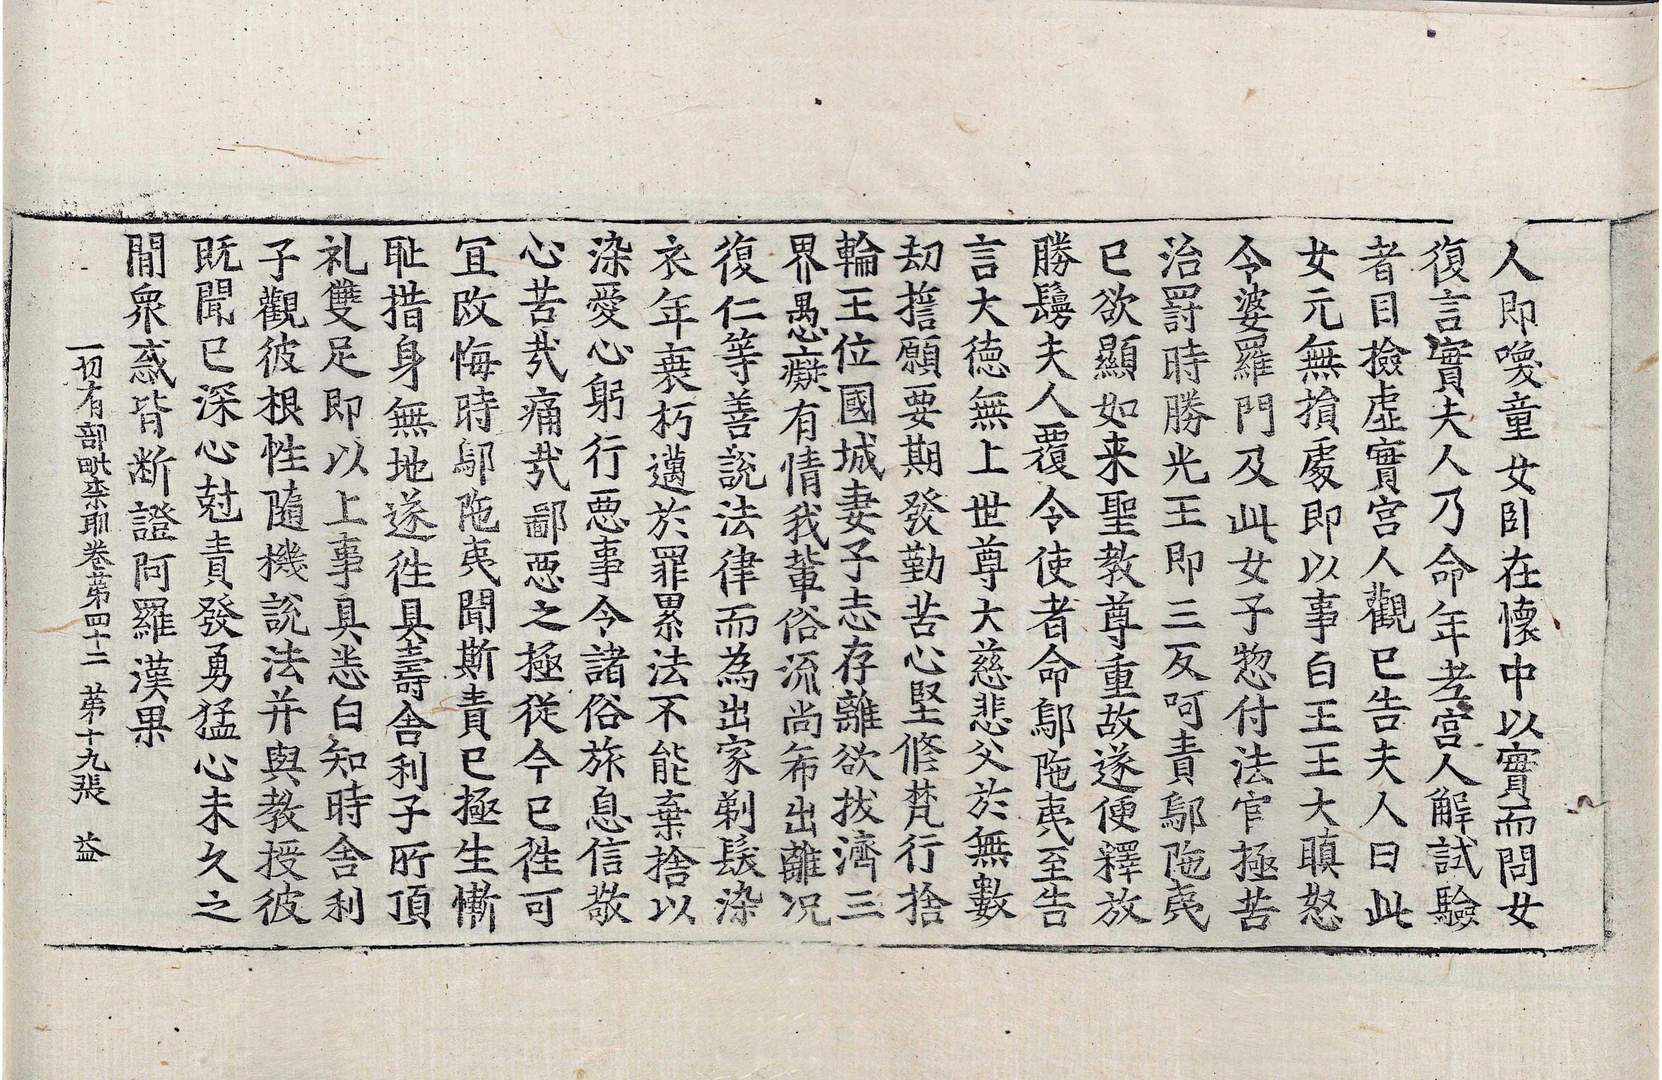 人即喚童女卧在懷中以實而問女
復言實夫人乃命年考宮人解試驗
者目撿虛實宮人觀已告夫人曰此
女元無損處即以事白王王大瞋怒
令婆羅門及此女子惣付法官極苦
治罸時勝光王即三反呵責鄔陁夷
已欲顯如来聖教尊重故遂便釋放
勝鬘夫人覆令使者命鄔陁夷至告
言大德無上世尊大慈悲父於無數
劫誓願要期發勤苦心堅修梵行捨
輪王位國城妻子志存離欲拔濟三
界愚癡有情我輩俗流尚希出離况
復仁等善說法律而為出家剃髮染
衣年衰朽邁於罪累法不能棄捨以
染愛心躬行惡事令諸俗旅息信敬
心苦㢤痛㢤鄙惡之極從今已徃可
冝改悔時鄔陁夷聞斯責已極生慚
耻措身無地遂徃具壽舍利子所頂
礼雙足即以上事具悉白知時舍利
子觀彼根性隨機說法并與教授彼
既聞已深心尅責發勇猛心未久之
間衆惑皆断證阿羅漢果
一切有部毗柰耶卷苐四十二 苐十九張 益